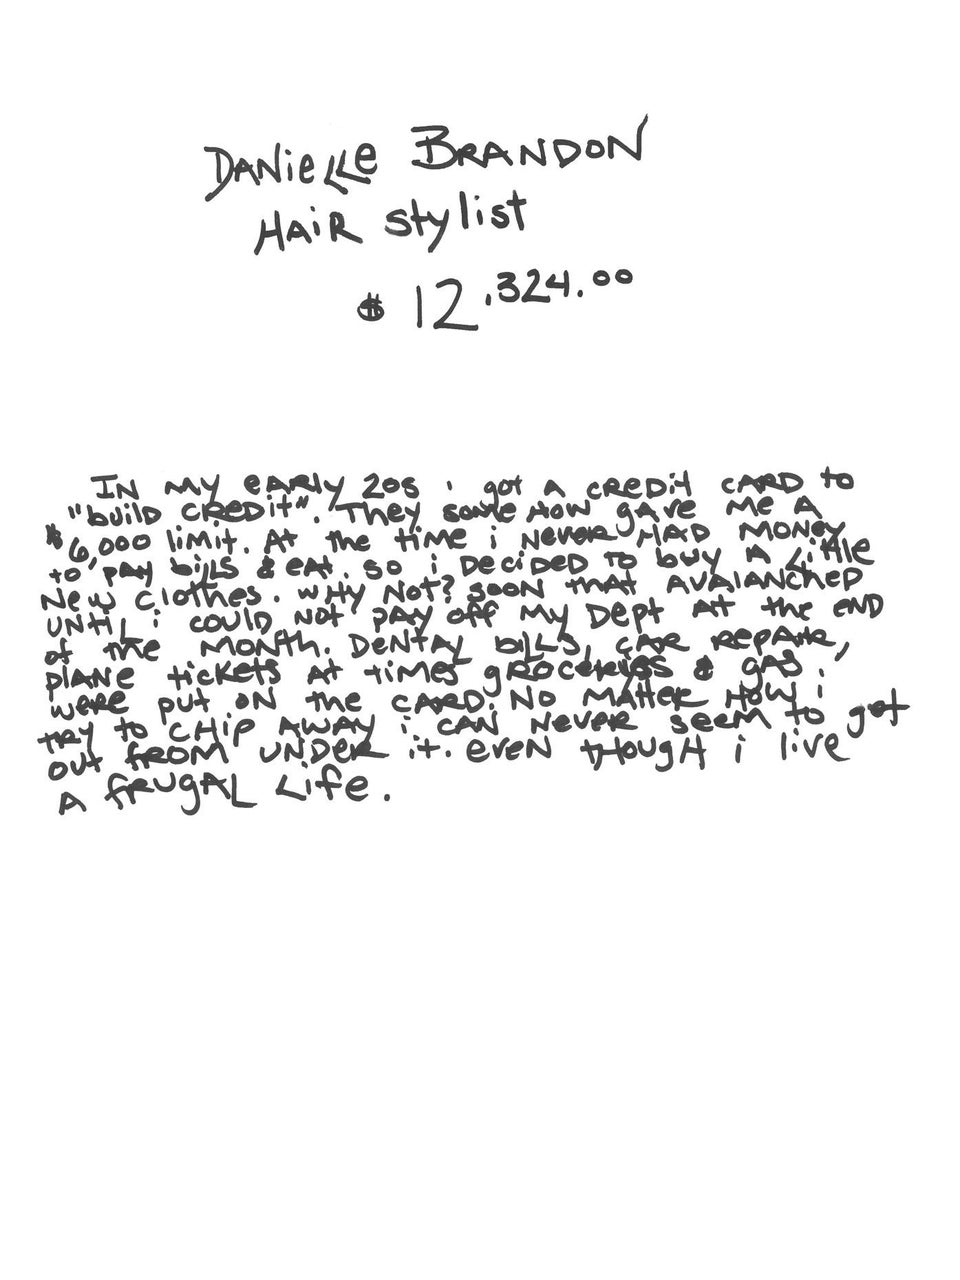 Danielle Brandon
Hair stylist
$12,324.00
In my early 20s i got a credit card to
"build credit". They some how gave me a
$6,000 limit. At the time i never had money
to pay bills & eat. so i decided to buy a little
new clothes. why not? soon that avalanched
until i could not pay off my dept at the end
of the month. Dentay bills, car repair,
plane tickets at times groceries & gas i
were put on the card. No matter how i
try to chip away i can never seem to get
out from under it. even though i live
a frugal life.